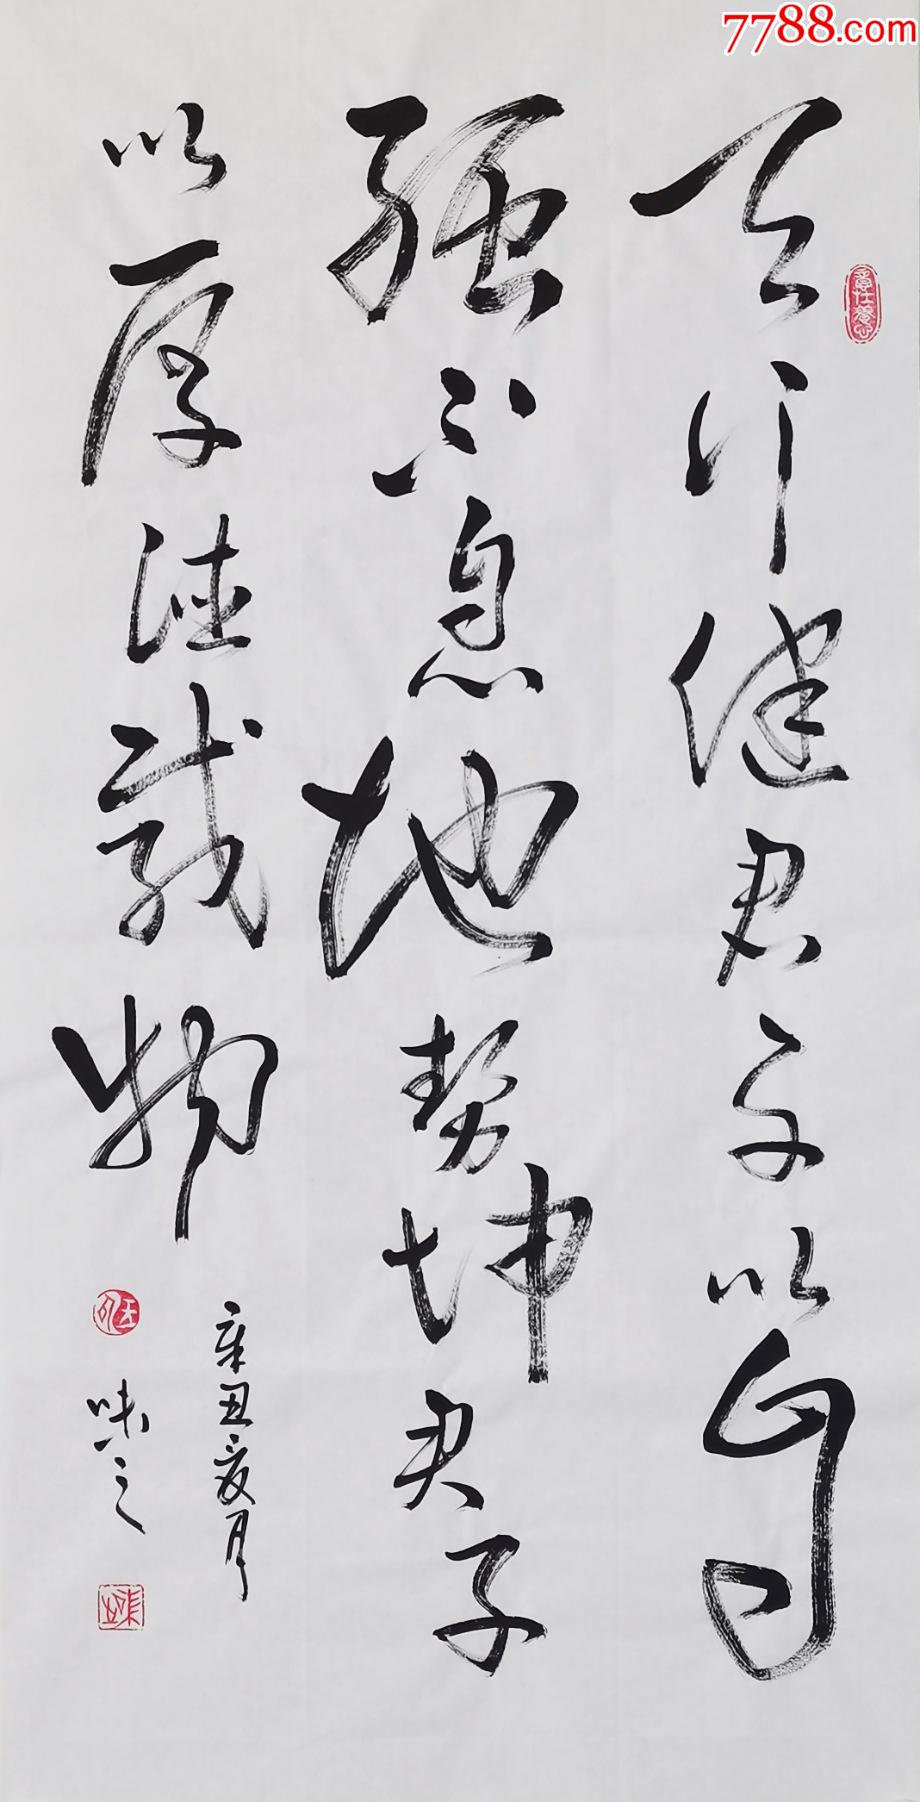 7788.com
天行健君子以自
强不息地勢坤君子
以厚德載物
辛丑夏月
味之